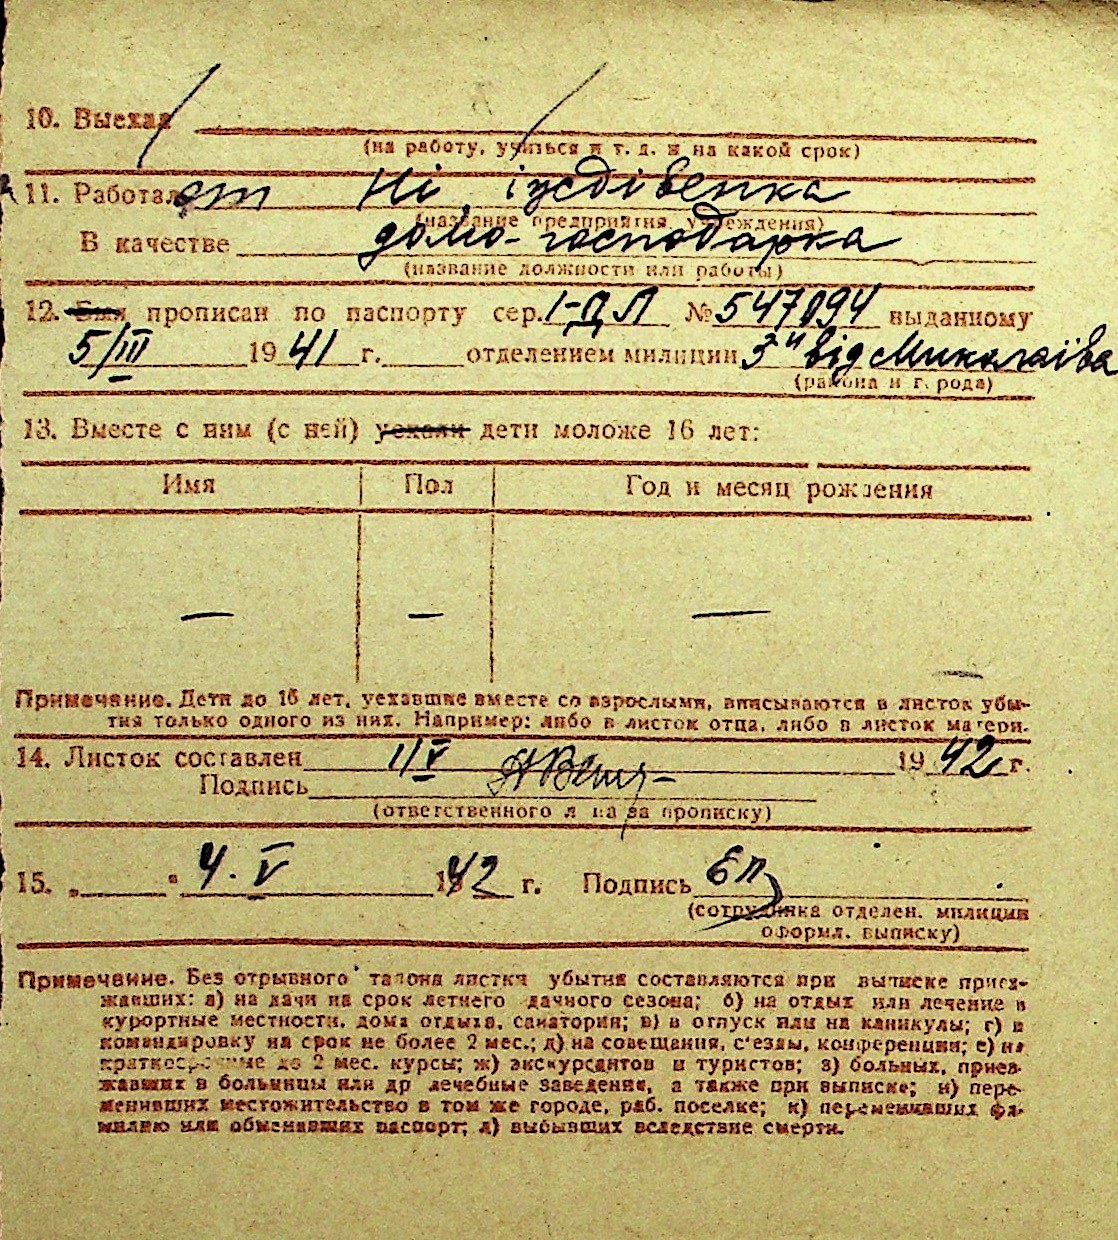 10. Выехал
(на работу, учиться и т. д. и на какой срок)
11. Работает Ні, іждівенка
(название предприятия, учреждения)
В качестве домо-господарка
(название должности или работы)
12. Был прописан по паспорту сер. І-ДЛ № 547094 выданному
5/III 1941 г. отделением милиции 3й від Миколаїва
(района и города)
13. Вместе с ним (с ней) уехали дети моложе 16 лет:
Имя Пол Год и месяц рождения
— — —
Примечание. Дети до 16 лет, уехавшие вместе со взрослыми, вписываются в листок убы-
тия только одного из них. Например: либо в листок отца, либо в листок матери.
14. Листок составлен 1/V 1942 г.
Подпись
(ответственного лица за прописку)
15. „ “ 4. V 1942 г. Подпись
(сотрудника отделен. милиции
оформл. выписку)
Примечание. Без отрывного талона листки убытия составляются при выписке приез-
жавших: а) на дачи на срок летнего дачного сезона; б) на отдых или лечение в
курортные местности, дома отдыха, санатории; в) в отпуск или на каникулы; г) в
командировку на срок не более 2 мес.; д) на совещания, с'езды, конференции; е) на
краткосрочные до 2 мес. курсы; ж) экскурсантов и туристов; з) больных, приез-
жавших в больницы или др лечебные заведения, а также при выписке; и) пере-
менивших местожительство в том же городе, раб. поселке; к) переменивших фа-
милию или обменявших паспорт; л) выбывших вследствие смерти.